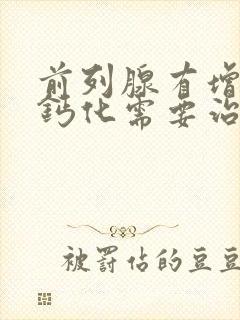 前列腺有增
鈣化需要治
被罰佔的豆豆